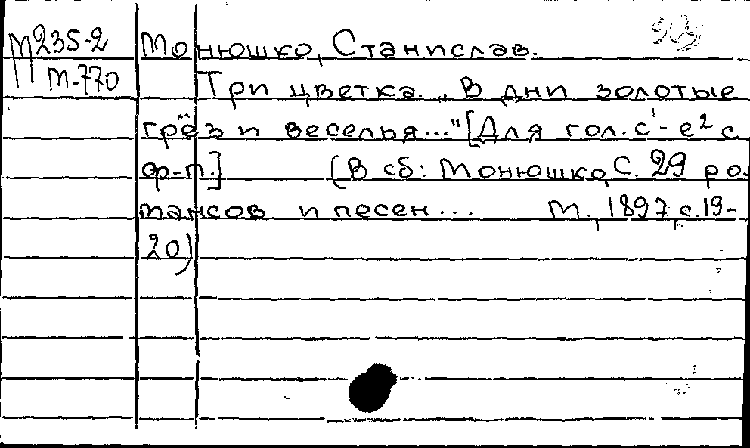 М235-2 Монюшко, Станислав.
М-770 Три цветка. „В дни золотые
грёз и веселья..." [Для гол. c¹-e² с
ф-п.] (В сб: Монюшко, С. 29 ро-
мансов и песен... М., 1897, с. 19-
20)